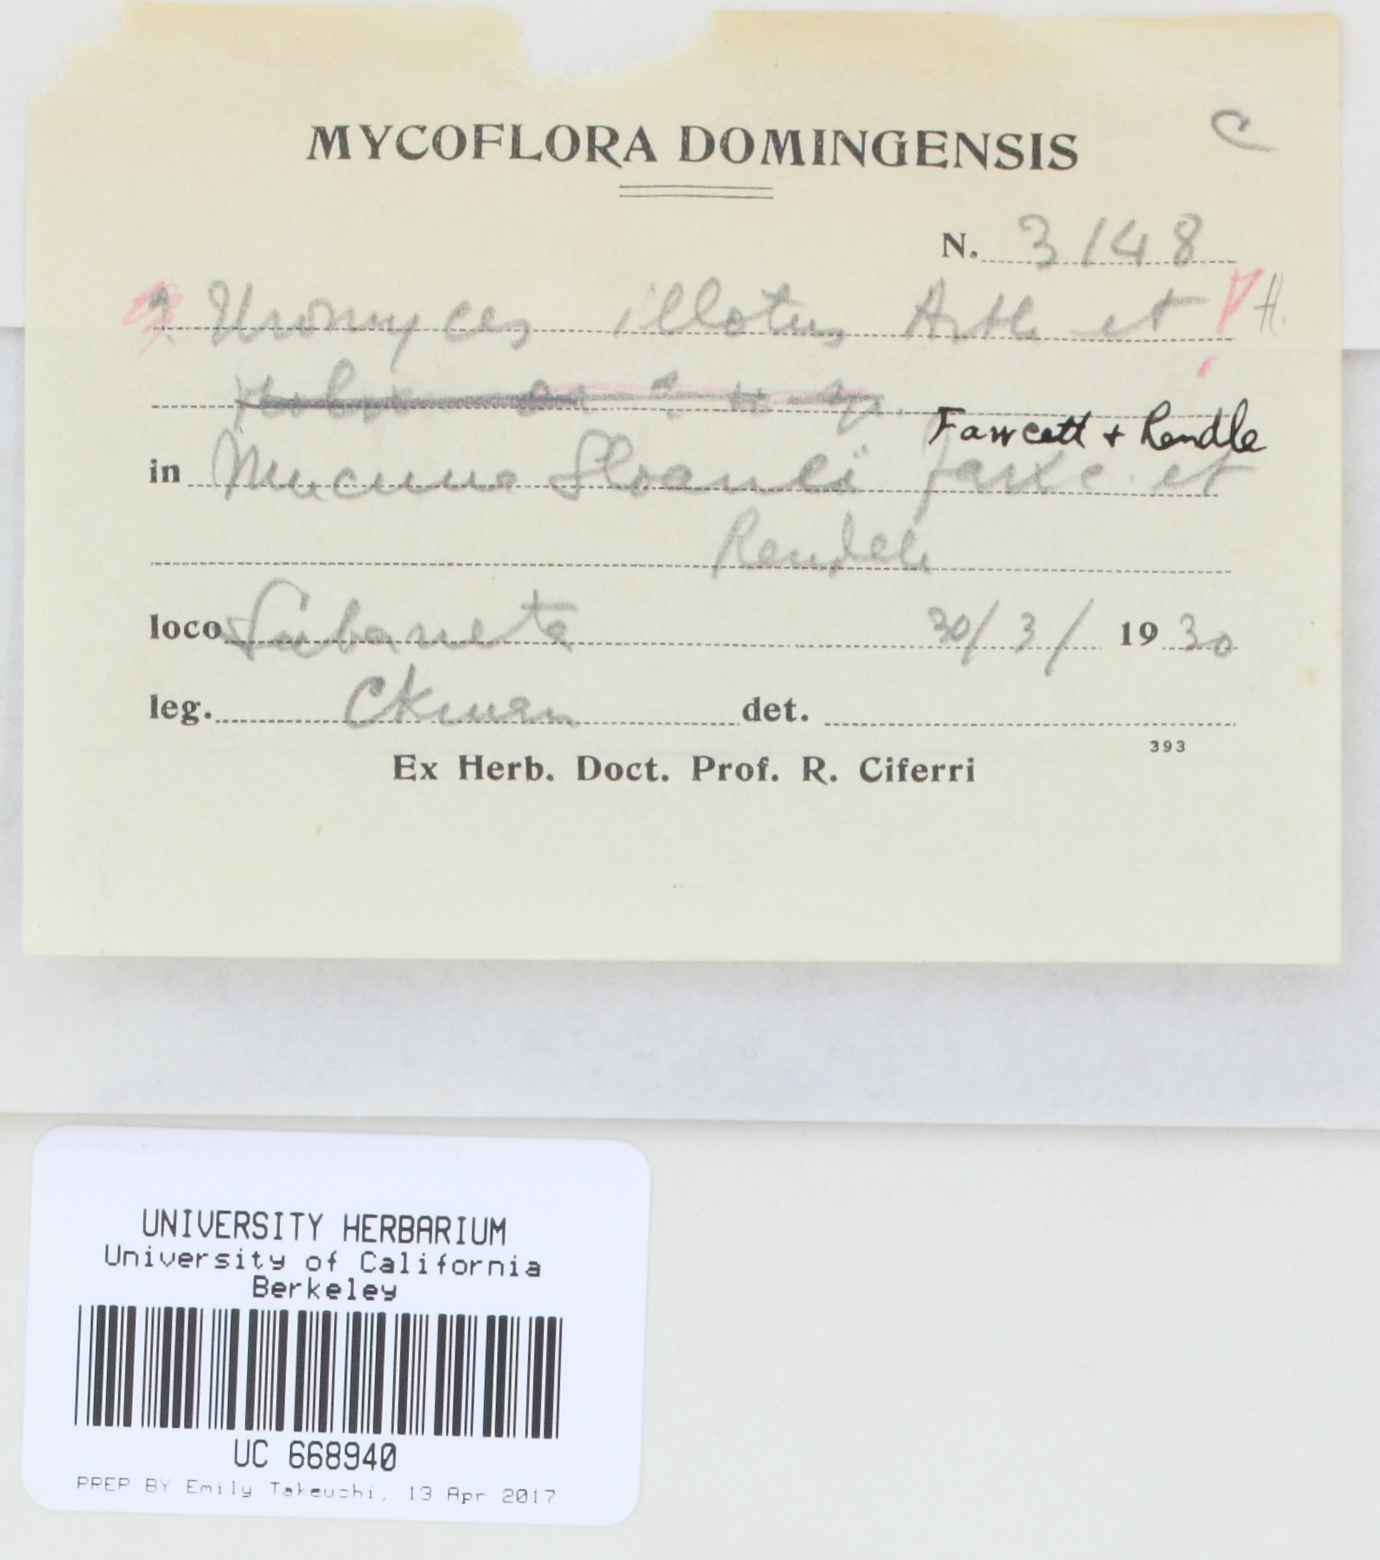 MYCOFLORA DOMINGENSIS
C
N. 3148
?. Uromyces illotus Arth et H.
Fawcett + Rendle
in Mucuna Sloanei Fawc. et
Rendle
loco Sabaneta 30/3/ 1930
leg. Ekman det.
393
Ex Herb. Doct. Prof. R. Ciferri
UNIVERSITY HERBARIUM
University of California
Berkeley
UC 668940
PREP BY Emily Takeuchi, 13 Apr 2017